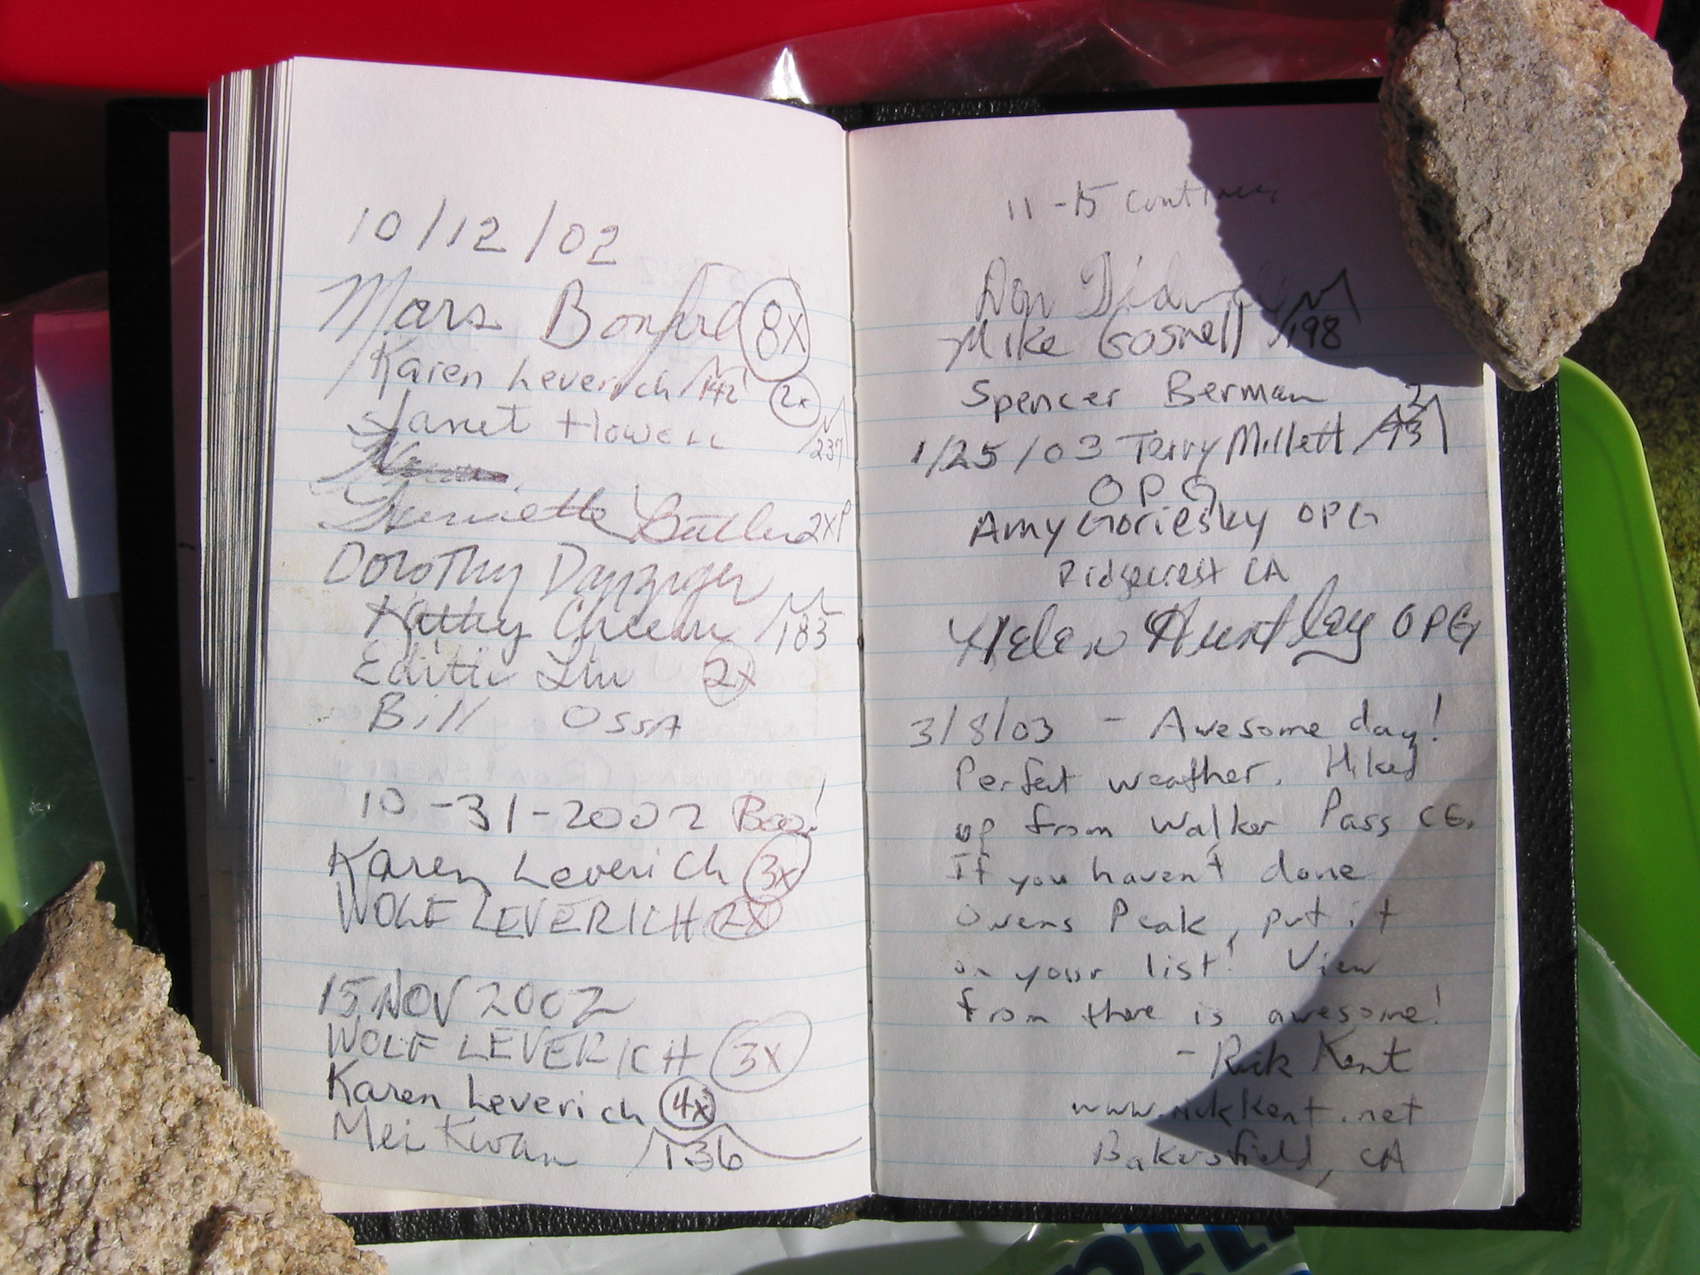 10/12/02
Mars Bonfire 8x
Karen Leverich 142 2x
Janet Howell 237
Henriette Butler 2xP
Dorothy Danziger
Kathy Cheever 183
Edith Liu 2x
Bill OSSA
10-31-2002 Boo!
Karen Leverich 3x
WOLF LEVERICH 2X
15 NOV 2002
WOLF LEVERICH 3X
Karen Leverich 4x
Mei Kwan 136
11-15 continues
Don
Mike Gosnell 198
Spencer Berman 2
1/25/03 Terry Millett 43
OPG
Amy Goriesky OPG
Ridgecrest CA
Helen Huntley OPG
3/8/03 - Awesome day!
Perfect weather. Hiked
up from Walker Pass CG.
If you haven't done
Owens Peak, put it
on your list! View
from there is awesome!
- Rick Kent
www.rickkent.net
Bakersfield, CA